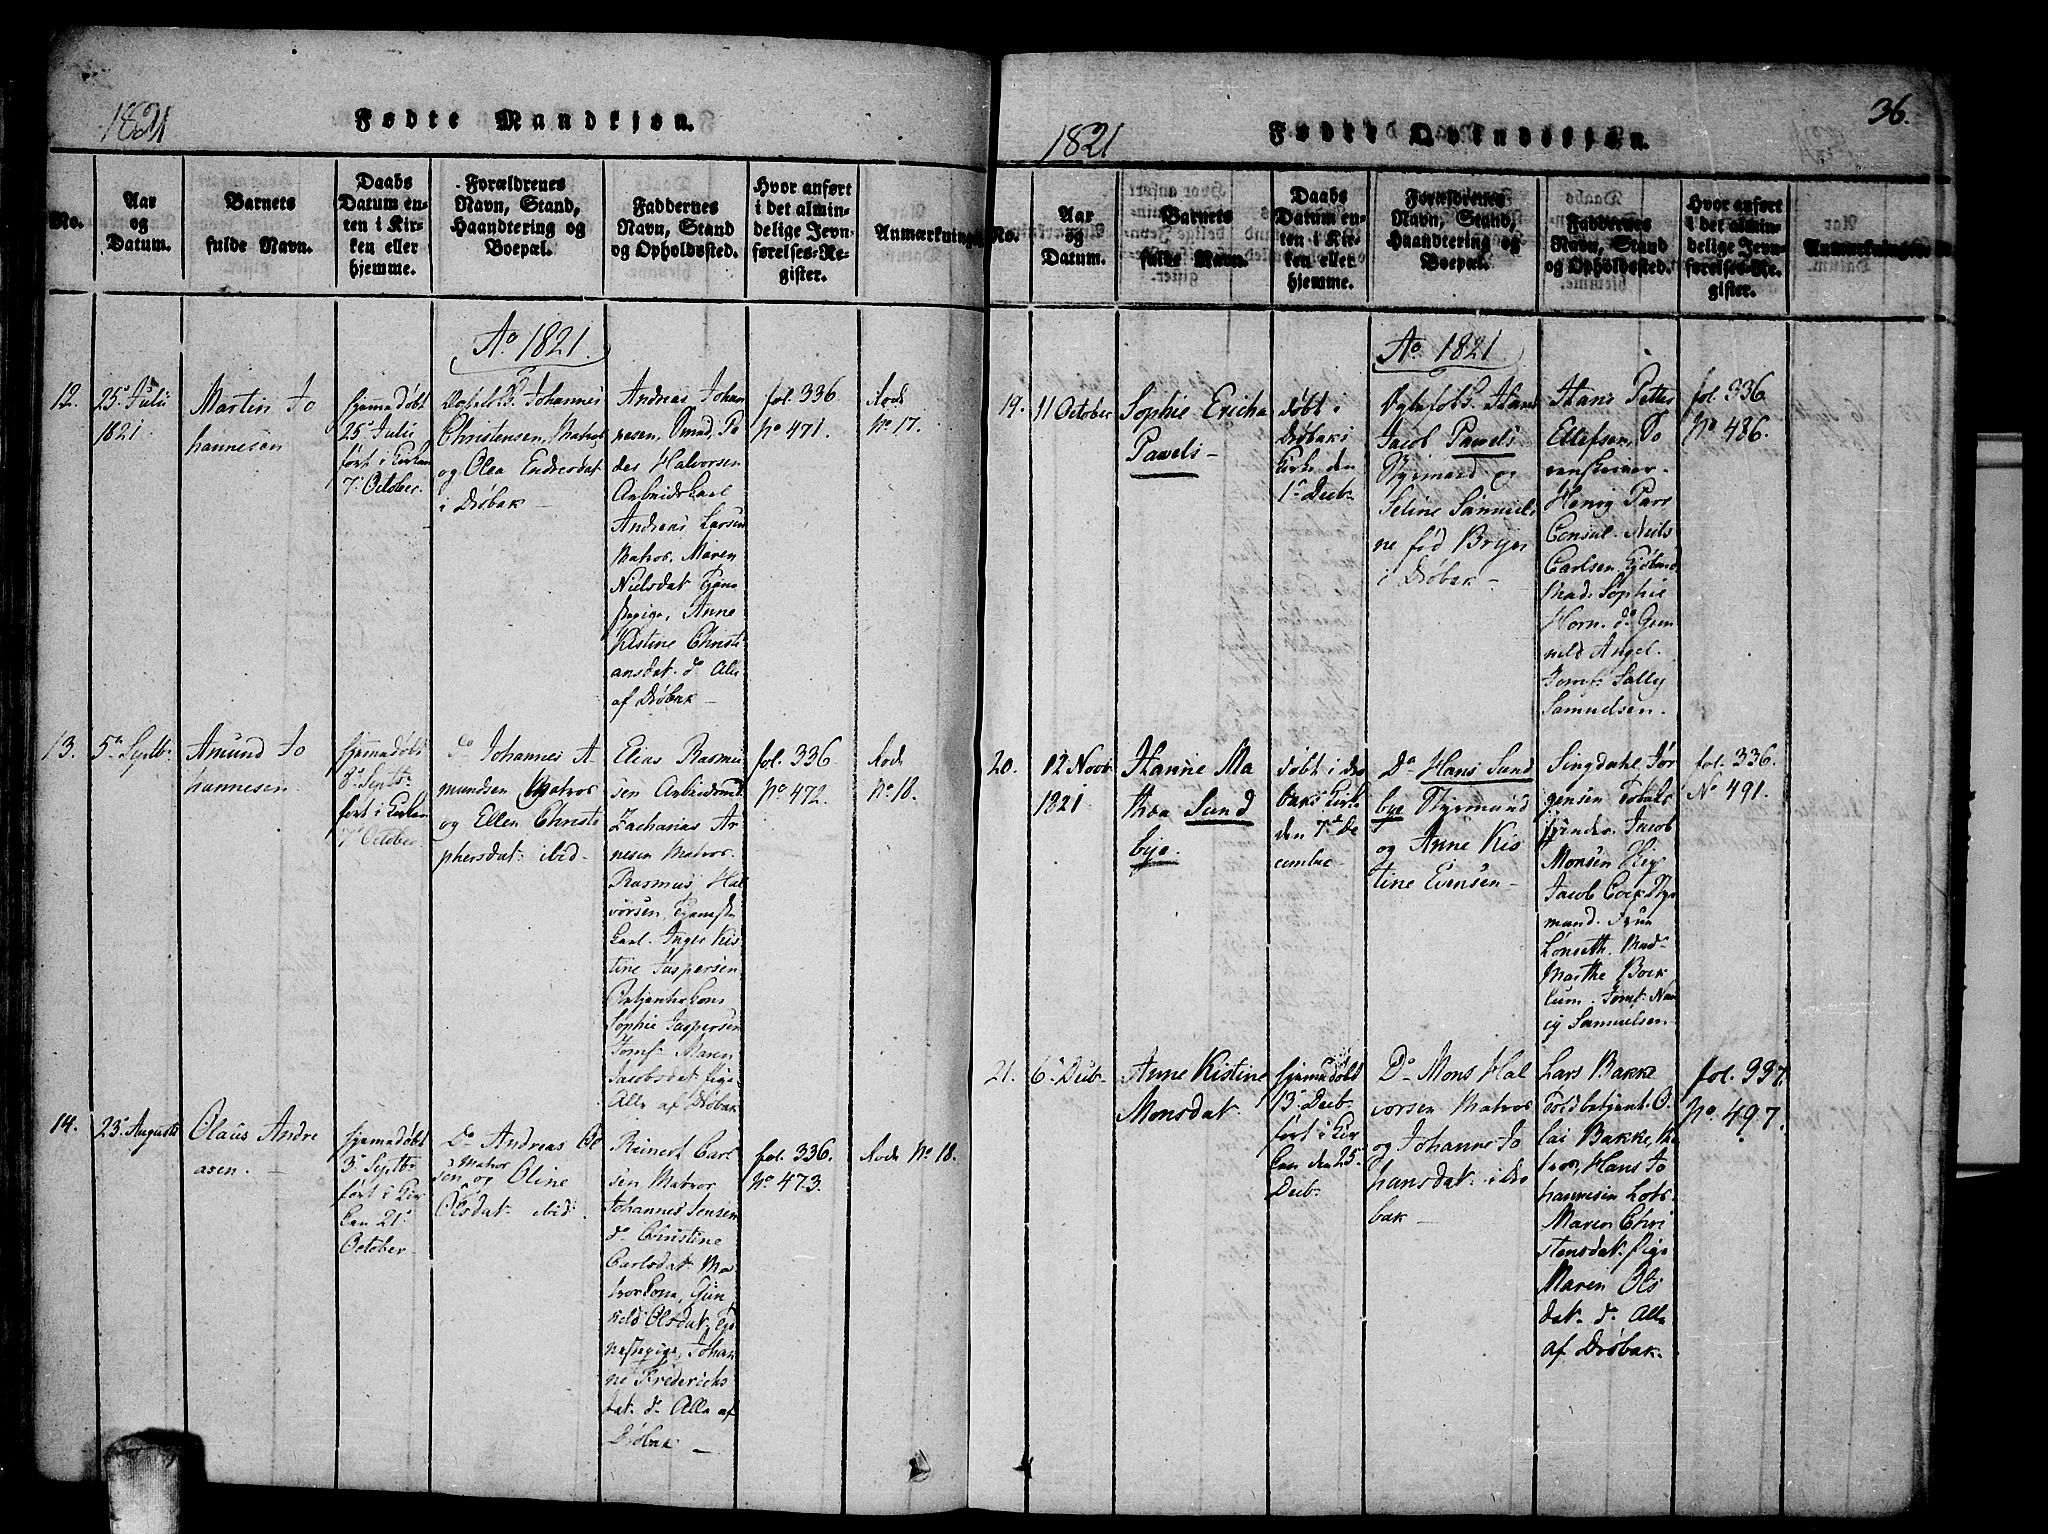 1821
Fødte Mandkjøn.
No.
Aar
og
Datum.
Barnets
fulde Navn.
Daabs
Datum en-
ten i Kir-
ken eller
hjemme.
Forældrenes
Navn, Stand,
Haandtering og
Boepæl.
Faddernes
Navn, Stand
og Opholdssted.
Hvor anført
i det almin-
delige Jevn-
førelses-Re-
gister.
Anmærkninger
Ao 1821.
12.
25 Julii
1821.
Martin Jo
hannesen
hjemadøbt
25 Julii
ført i Kirken
7 October.
Johannes
Christensen, Matros
og Olea Endresdat
i Drøbak
Andreas Johan
nesen, Smed, Pe
der Halvorsen
Arbeidskarl
Andreas Larsen
Matros. Maren
Nielsdat Tjene
stepige, Anne
Kistine Christi
ansdat. do Alle
af Drøbak
fol. 336
No 471.
Rode
No 17.
13.
5 Septb.
Amund Jo
hannesen
hjemadøbt
8 Septb.
ført i Kirken
7 October.
do Johannes A
mundsen Matros
og Ellen Christo
phersdat ibid
Elias Rasmus
sen Arbeidsmd
Zacharias Ar
nesen Matros.
Rasmus Hal
vorsen, Tjeneste
karl. Inger Kis
tine Jaspersen
Sophie Jaspersen
Jomf. Maren
Jacobsdat Pige
Alle af Drøbak
fol. 336
No 472.
Rode
No 18.
14.
23 Augusti
Olaus Andre
asen.
hjemadøbt
3 Septb
ført i Kir
ken 21
October
Do Andreas Ol
sen Matros og Oline
Olsdat ibid.
Reinert Carl
sen Matros
Johannes Jensen
do Christine
Carlsdat Ma
troskone, Gun
nild Olsdat, Tje
nestepige, Johan
ne Frederichs
dat. do Alle af
Drøbak
fol. 336.
No 473.
Rode No 18.
36.
1821
Fødte Qvindekjøn.
No.
Aar
og
Datum.
Barnets
fulde Navn.
Daabs
Datum en-
ten i Kir-
ken eller
hjemme.
Forældrenes
Navn, Stand,
Haandtering og
Boepæl.
Faddernes
Navn, Stand
og Opholdssted.
Hvor anført
i det almin-
delige Jevn-
førelses-Re-
gister.
Anmærkninger
Ao 1821
19.
11 October
Sophie Ericha
Pawels
døbt i
Drøbaks
Kirke den
1 Decb.
Hans
Jacob Pawels
Styrmand og
Seline Samueli
ne fød Bryn
i Drøbak
Hans Petter
Ellefsen, So
renskriver
Henrig Parr
Consul. Niels
Carlsen Kjøbmd
Mad. Sophie
Horn. do Gun
nild Angel.
Jomf. Sally
Samuelsen.
fol. 336
No 486.
20.
12 Novb
1821
Hanne Ma
thea Sund
bye.
døbt i Drø
baks Kirke
den 7 De
cember
Do Hans Sund
bye Styrmand
og Anne Kis
tine Evensen
Singdahl Jør
gensen Tobaks
spinder. Jacob
Monsen
Jacob Cock Styr
mand. Frue
Lønseth. Mad.
Marthe Bock
lum. Jomf. Nan
cy Samuelsen
fol. 336.
No 491.
21.
6 Decb.
Anne Kistine
Monsdat.
hjemadøbt
13 Decb.
ført i Kir
ken den 25
Decb.
Do Mons Hal
vorsen Matros
og Johanne Jo
hansdat i Drø
bak
Lars Bakke
Toldbetjent. O.
lai Bakke, Ma
tros, Hans Jo
hannesen Lods.
Maren Chri
stensdat. Pige
Maren Ols
dat. do Alle
af Drøbak.
fol. 337.
No 497.